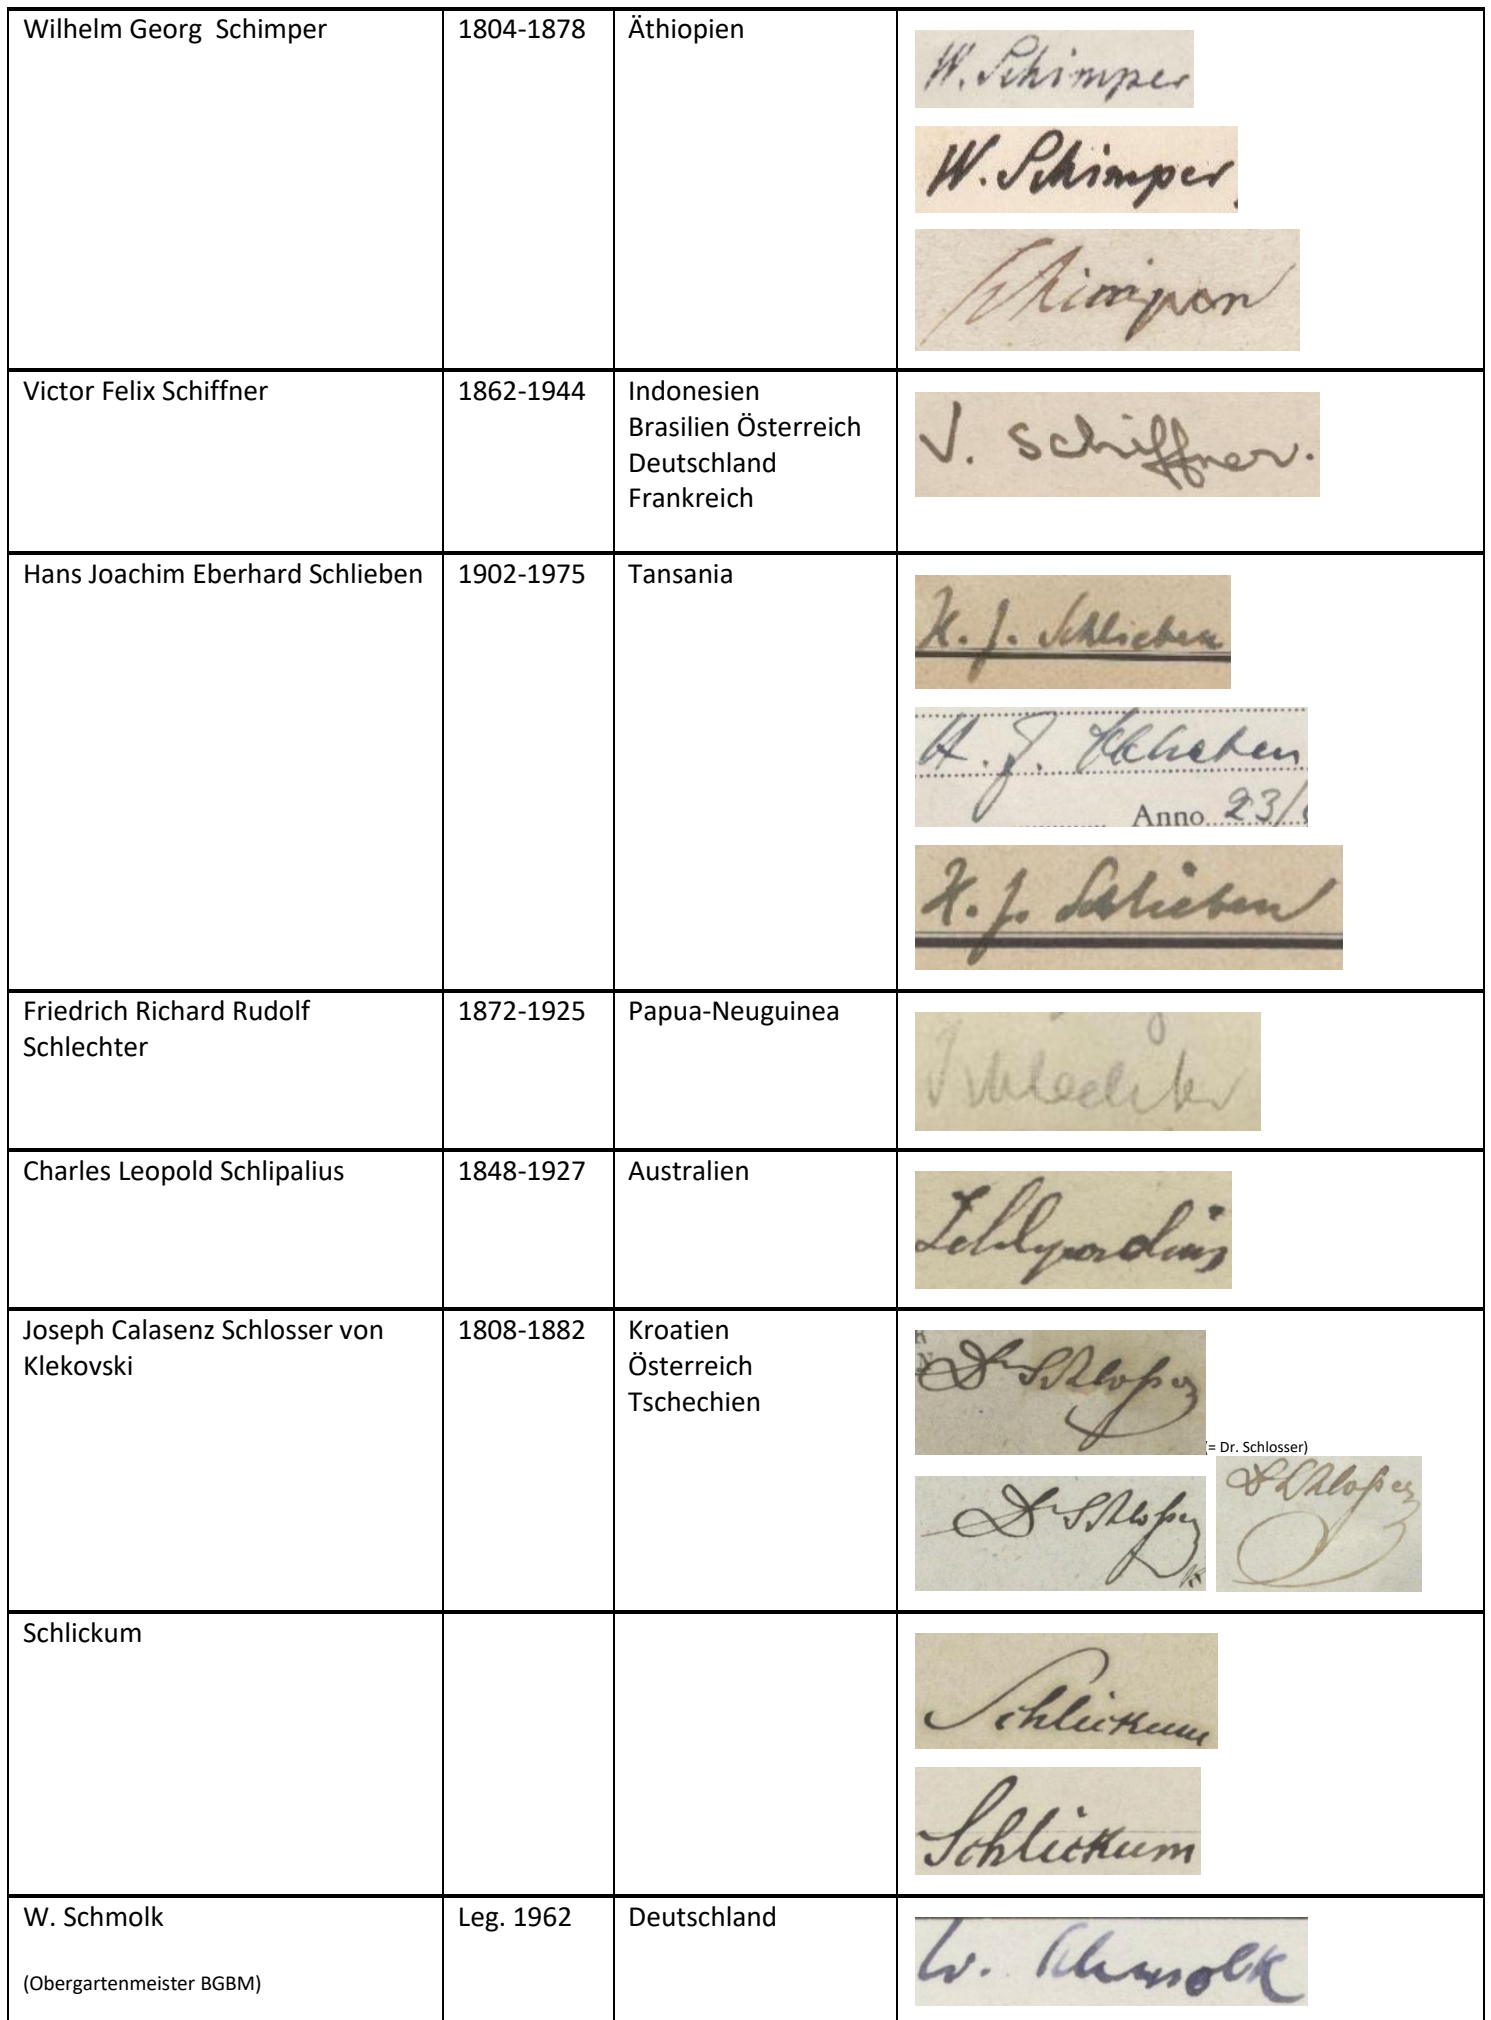 Wilhelm Georg  Schimper
1804-1878
Äthiopien
W. Schimper
W. Schimper
Schimper
Victor Felix Schiffner
1862-1944
Indonesien
Brasilien Österreich
Deutschland
Frankreich
V. Schiffner.
Hans Joachim Eberhard Schlieben
1902-1975
Tansania
H. J. Schlieben
H. J. Schlieben
Anno 23/
H. J. Schlieben
Friedrich Richard Rudolf
Schlechter
1872-1925
Papua-Neuguinea
Schlechter
Charles Leopold Schlipalius
1848-1927
Australien
Joseph Calasenz Schlosser von
Klekovski
1808-1882
Kroatien
Österreich
Tschechien
Dr Schloßer
(= Dr. Schlosser)
Dr Schloßer
Dr Schloßer
Schlickum
Schlickum
Schlickum
W. Schmolk
(Obergartenmeister BGBM)
Leg. 1962
Deutschland
W. Schmolk